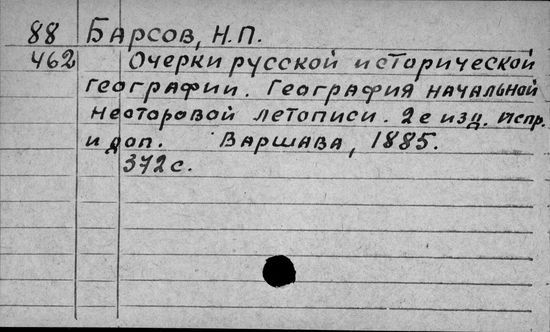 88 Барсов, Н.П.
462 Очерки русской исторической
географии. География начальной
Несторовой летописи. 2е изд. Испр.
и доп. Варшава, 1885.
372 с.